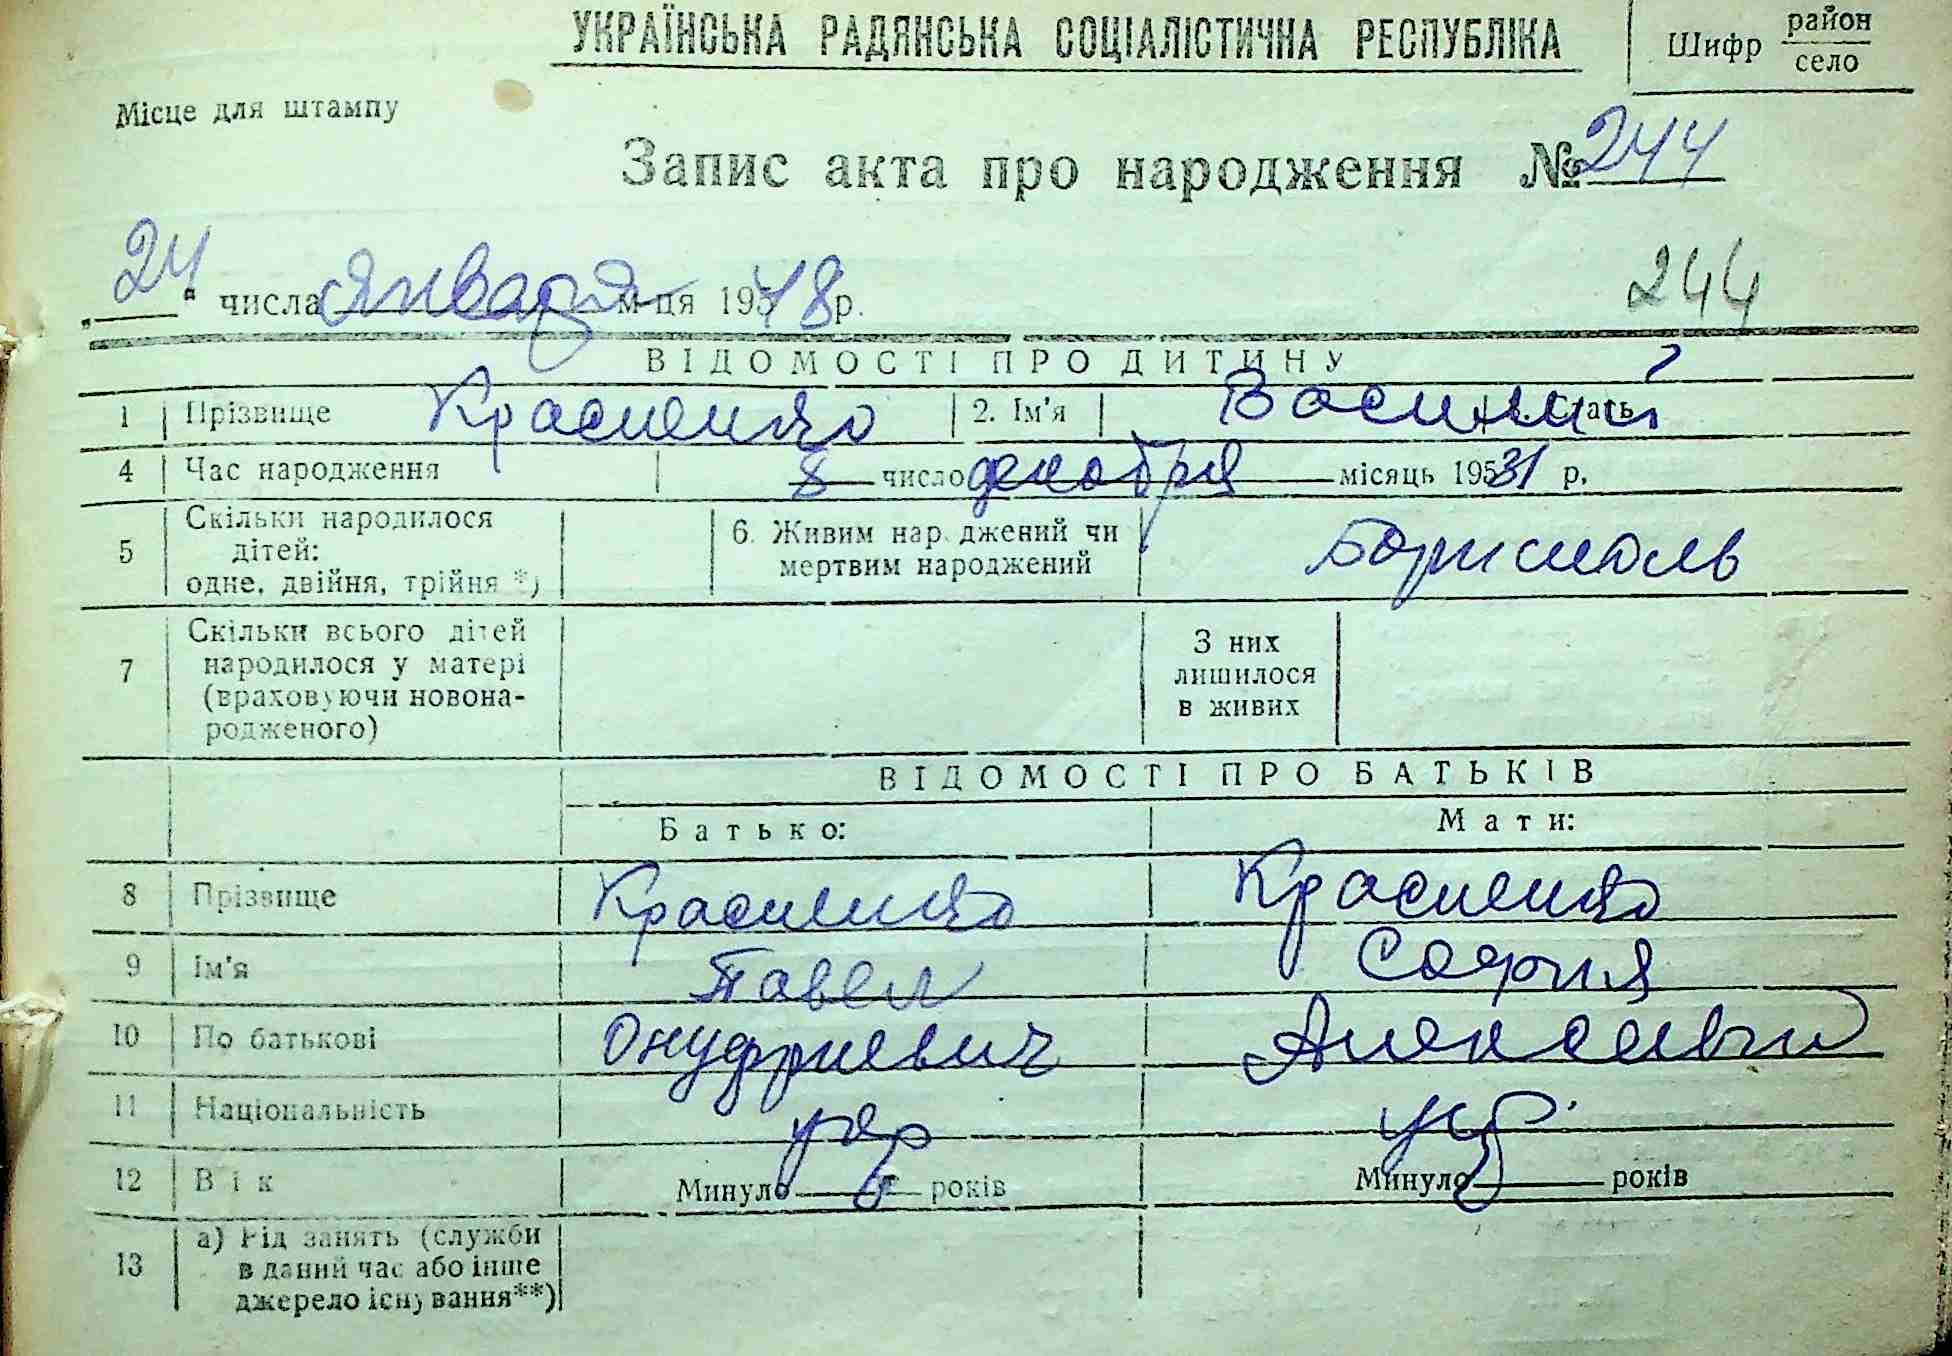 УКРАЇНСЬКА РАДЯНСЬКА СОЦІАЛІСТИЧНА РЕСПУБЛІКА
Шифр район
село
Місце для штампу
Запис акта про народження № 244
„ 24 " числа января м-ця 1948 р.
244
ВІДОМОСТІ ПРО ДИТИНУ
1 Прізвище Красненко 2. Ім'я Василий
4 Час народження 8 число декабря місяць 1931 р.
5 Скільки народилося
дітей:
одне, двійня, трійня *)
6. Живим народжений чи
мертвим народжений
Борисполь
7 Скільки всього дітей
народилося у матері
(враховуючи новона-
родженого)
З них
лишилося
в живих
ВІДОМОСТІ ПРО БАТЬКІВ
Батько: Мати:
8 Прізвище Красненко Красненко
9 Ім'я Павел София
10 По батькові Онуфриевич Алексеевн
11 Національність укр укр.
12 Вік Минуло років Минуло років
13 а) Рід занять (служби
в даний час або інше
джерело існування**)